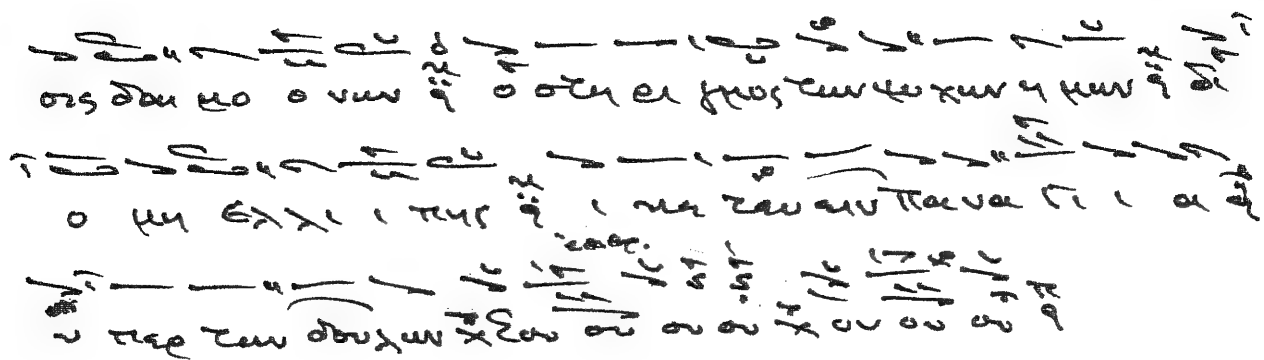 σις δαι μο ο νων ο στη ρι γμος των ψυ χων η μων δι
ο μη ελ λι ι πης ι κε τευ ειν Πα να γι ι α
υ περ των δου λων σου ου ου ου χ ου ου ου